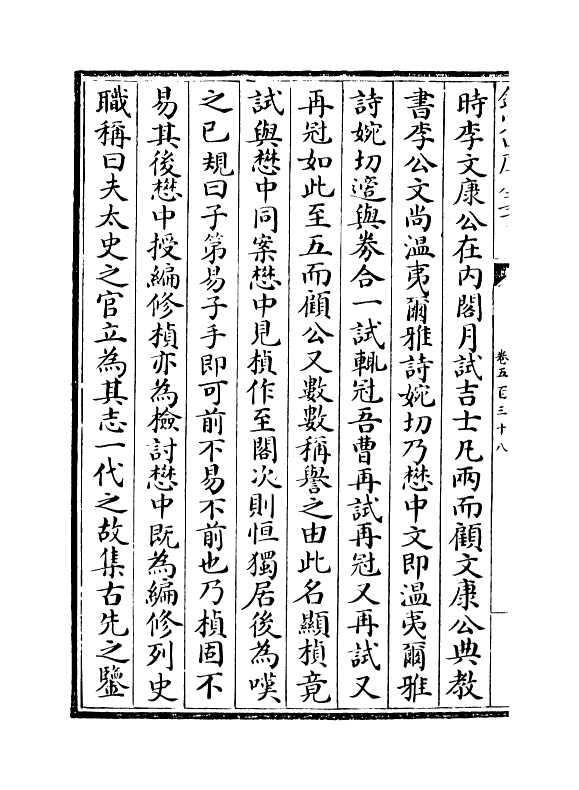 卷五百三十八
時李文康公在内閣月試吉士凡兩而顧文康公典教
書李公文尚温夷爾雅詩婉切乃懋中文即温夷爾雅
詩婉切邃與劵合一試輒冠吾曹再試再冠又再試又
再冠如此至五而顧公又數數稱譽之由此名顯楨竟
試與懋中同案懋中見楨作至閣次則恒獨居後為嘆
之已規曰子第易子手即可前不易不前也乃楨固不
易其後懋中授編修楨亦為檢討懋中既為編修列史
職稱曰夫太史之官立為其志一代之故集古先之鑒